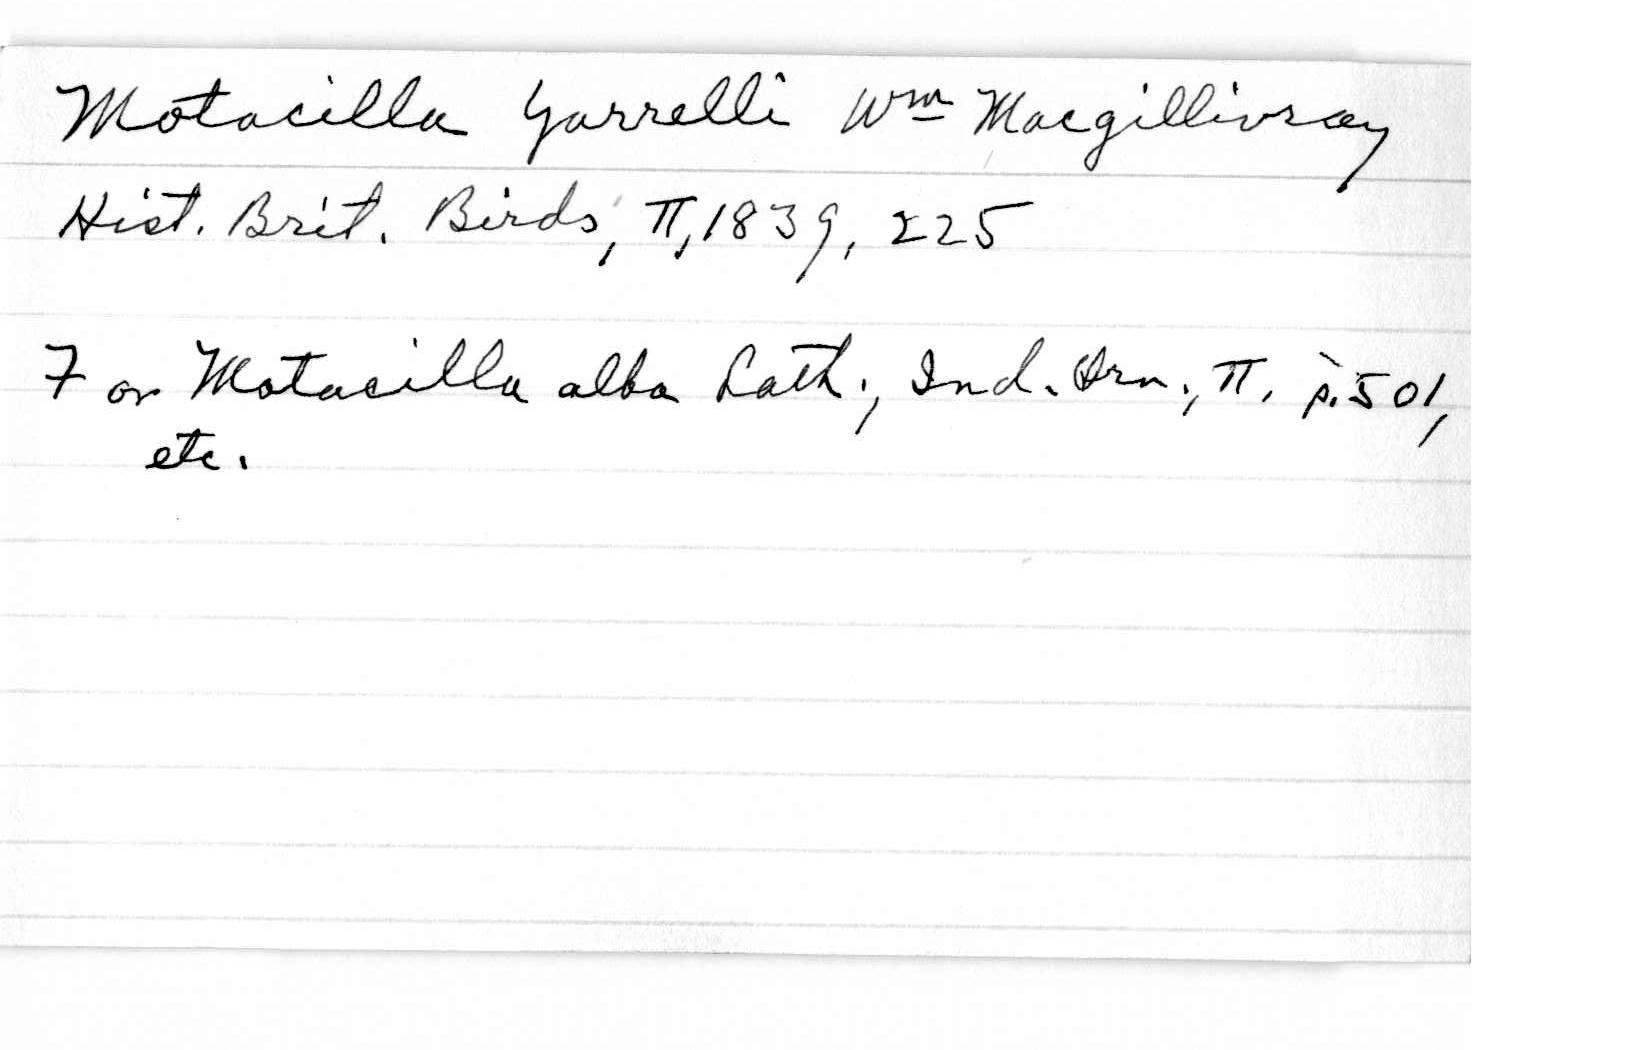 Motacilla Yarrelli Wm Macgillivray
Hist. Brit. Birds, II, 1839, 225
For Motacilla alba Lath., Ind. Orn., II. p. 501,
etc.